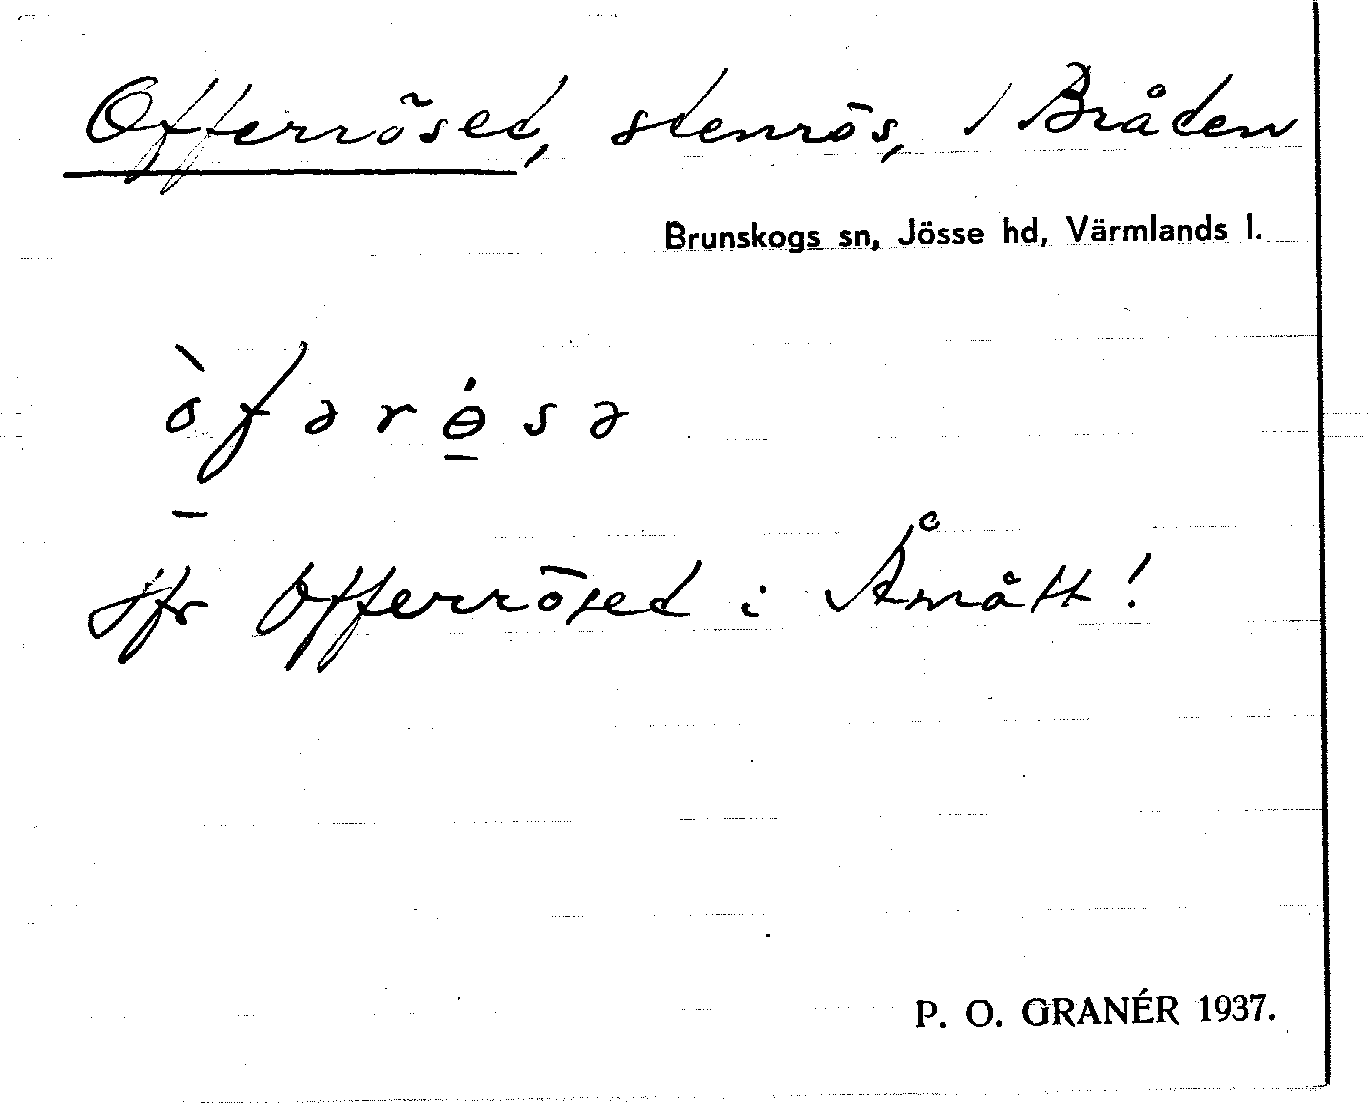 Offerröset, stenrös, / Bråten
Brunskogs sn, Jösse hd, Värmlands l.
òfərɵ́sə
Jfr Offerröset i Åmått!
P. O. GRANÉR 1937.